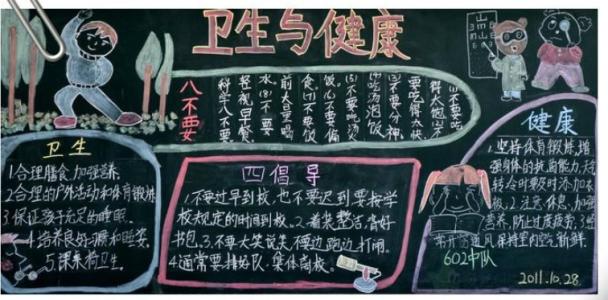 卫生与健康
八不要
(1)不要吃
得太饱(2)不
要吃得太快
(3)不要分神
吃汤泡饭
(5)不要吃汤
食(7)不要饭
前大量喝
水(8)不要
轻视早餐
卫生
1合理膳食,加强营养.
2合理的户外活动和体育锻炼
3保证孩子充足的睡眠.
4培养良好习惯和睡姿.
5.课桌椅卫生.
四倡导
1.不要过早到校,也不要迟到要按学
校规定的时间到校.2.着装整洁,背好
书包.3.不要大笑说天不要边跑边打闹.
4通常要排好队.集体离校.
健康
1.坚持体育锻炼,增
强身体的抗菌能力,天气
转冷时要及时添加衣
服;2.注意休息,加强
营养,防止过度疲劳;3经
常开窗通风保持室内空气新鲜
602中队
2011.10.28.